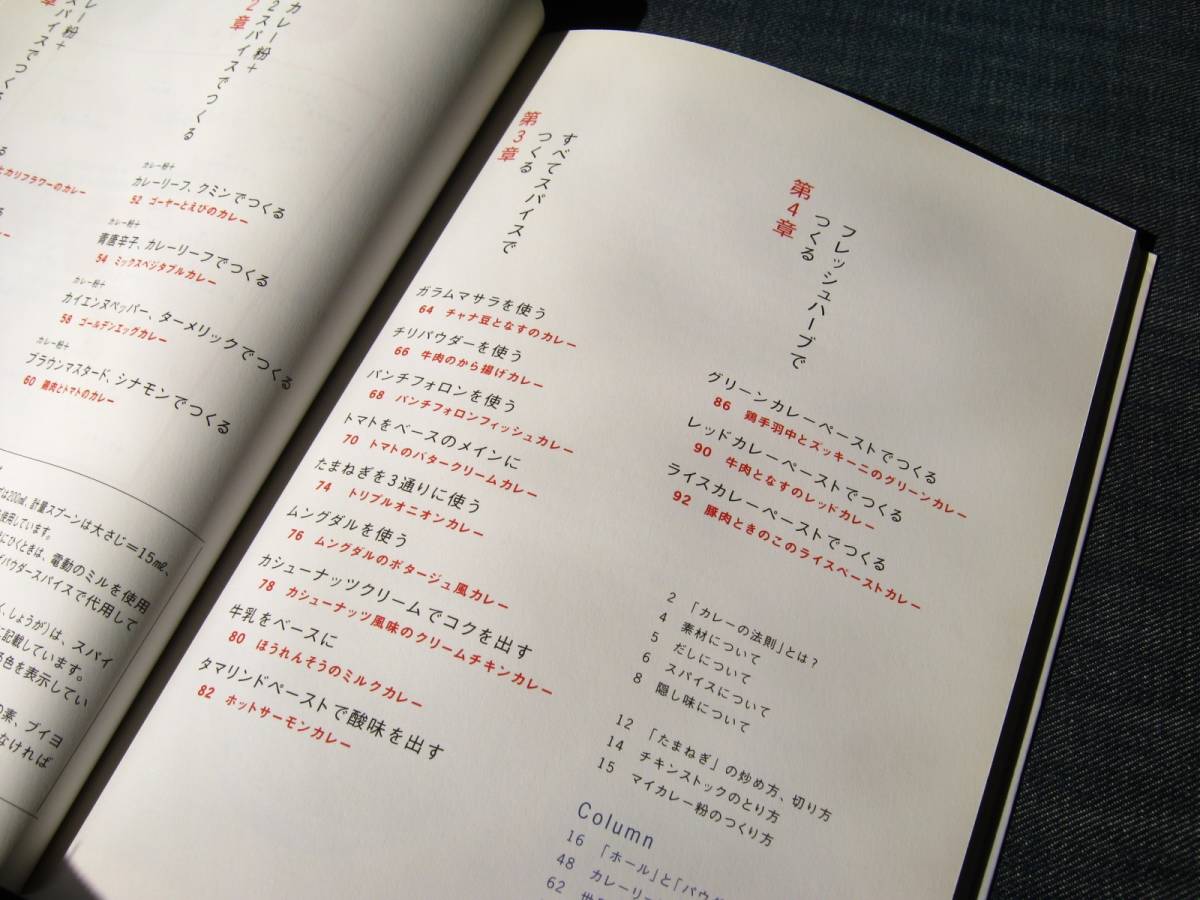 章
レー粉+
スパイスでつくる
2章
カレー粉+
2スパイスでつくる
る
とカリフラワーのカレー
る
レー
カレー粉+
カレーリーフ、クミンでつくる
52 ゴーヤーとえびのカレー
カレー粉+
青唐辛子、カレーリーフでつくる
54 ミックスベジタブルカレー
カレー粉+
カイエンヌペッパー、ターメリックでつくる
58 ゴールデンエッグカレー
カレー粉+
ブラウンマスタード、シナモンでつくる
60 鶏肉とトマトのカレー
は200㎖、計量スプーンは大さじ=15㎖、
使用しています。
にひくときは、電動のミルを使用
パウダースパイスで代用して
く、しょうが)は、スパイ
に記載しています。
る色を表示してい
の素、ブイヨ
なければ
第3章
すべてスパイスで
つくる
ガラムマサラを使う
64 チャナ豆となすのカレー
チリパウダーを使う
66 牛肉のから揚げカレー
パンチフォロンを使う
68 パンチフォロンフィッシュカレー
トマトをベースのメインに
70 トマトのバタークリームカレー
たまねぎを3通りに使う
74 トリプルオニオンカレー
ムングダルを使う
76 ムングダルのポタージュ風カレー
カシューナッツクリームでコクを出す
78 カシューナッツ風味のクリームチキンカレー
牛乳をベースに
80 ほうれんそうのミルクカレー
タマリンドペーストで酸味を出す
82 ホットサーモンカレー
第4章
フレッシュハーブで
つくる
グリーンカレーペーストでつくる
86 鶏手羽中とズッキーニのグリーンカレー
レッドカレーペーストでつくる
90 牛肉となすのレッドカレー
ライスカレーペーストでつくる
92 豚肉ときのこのライスペーストカレー
2 「カレーの法則」とは?
4 素材について
5 だしについて
6 スパイスについて
8 隠し味について
12 「たまねぎ」の炒め方、切り方
14 チキンストックのとり方
15 マイカレー粉のつくり方
Column
16 「ホール」と「パウダ
48 カレーリー
62